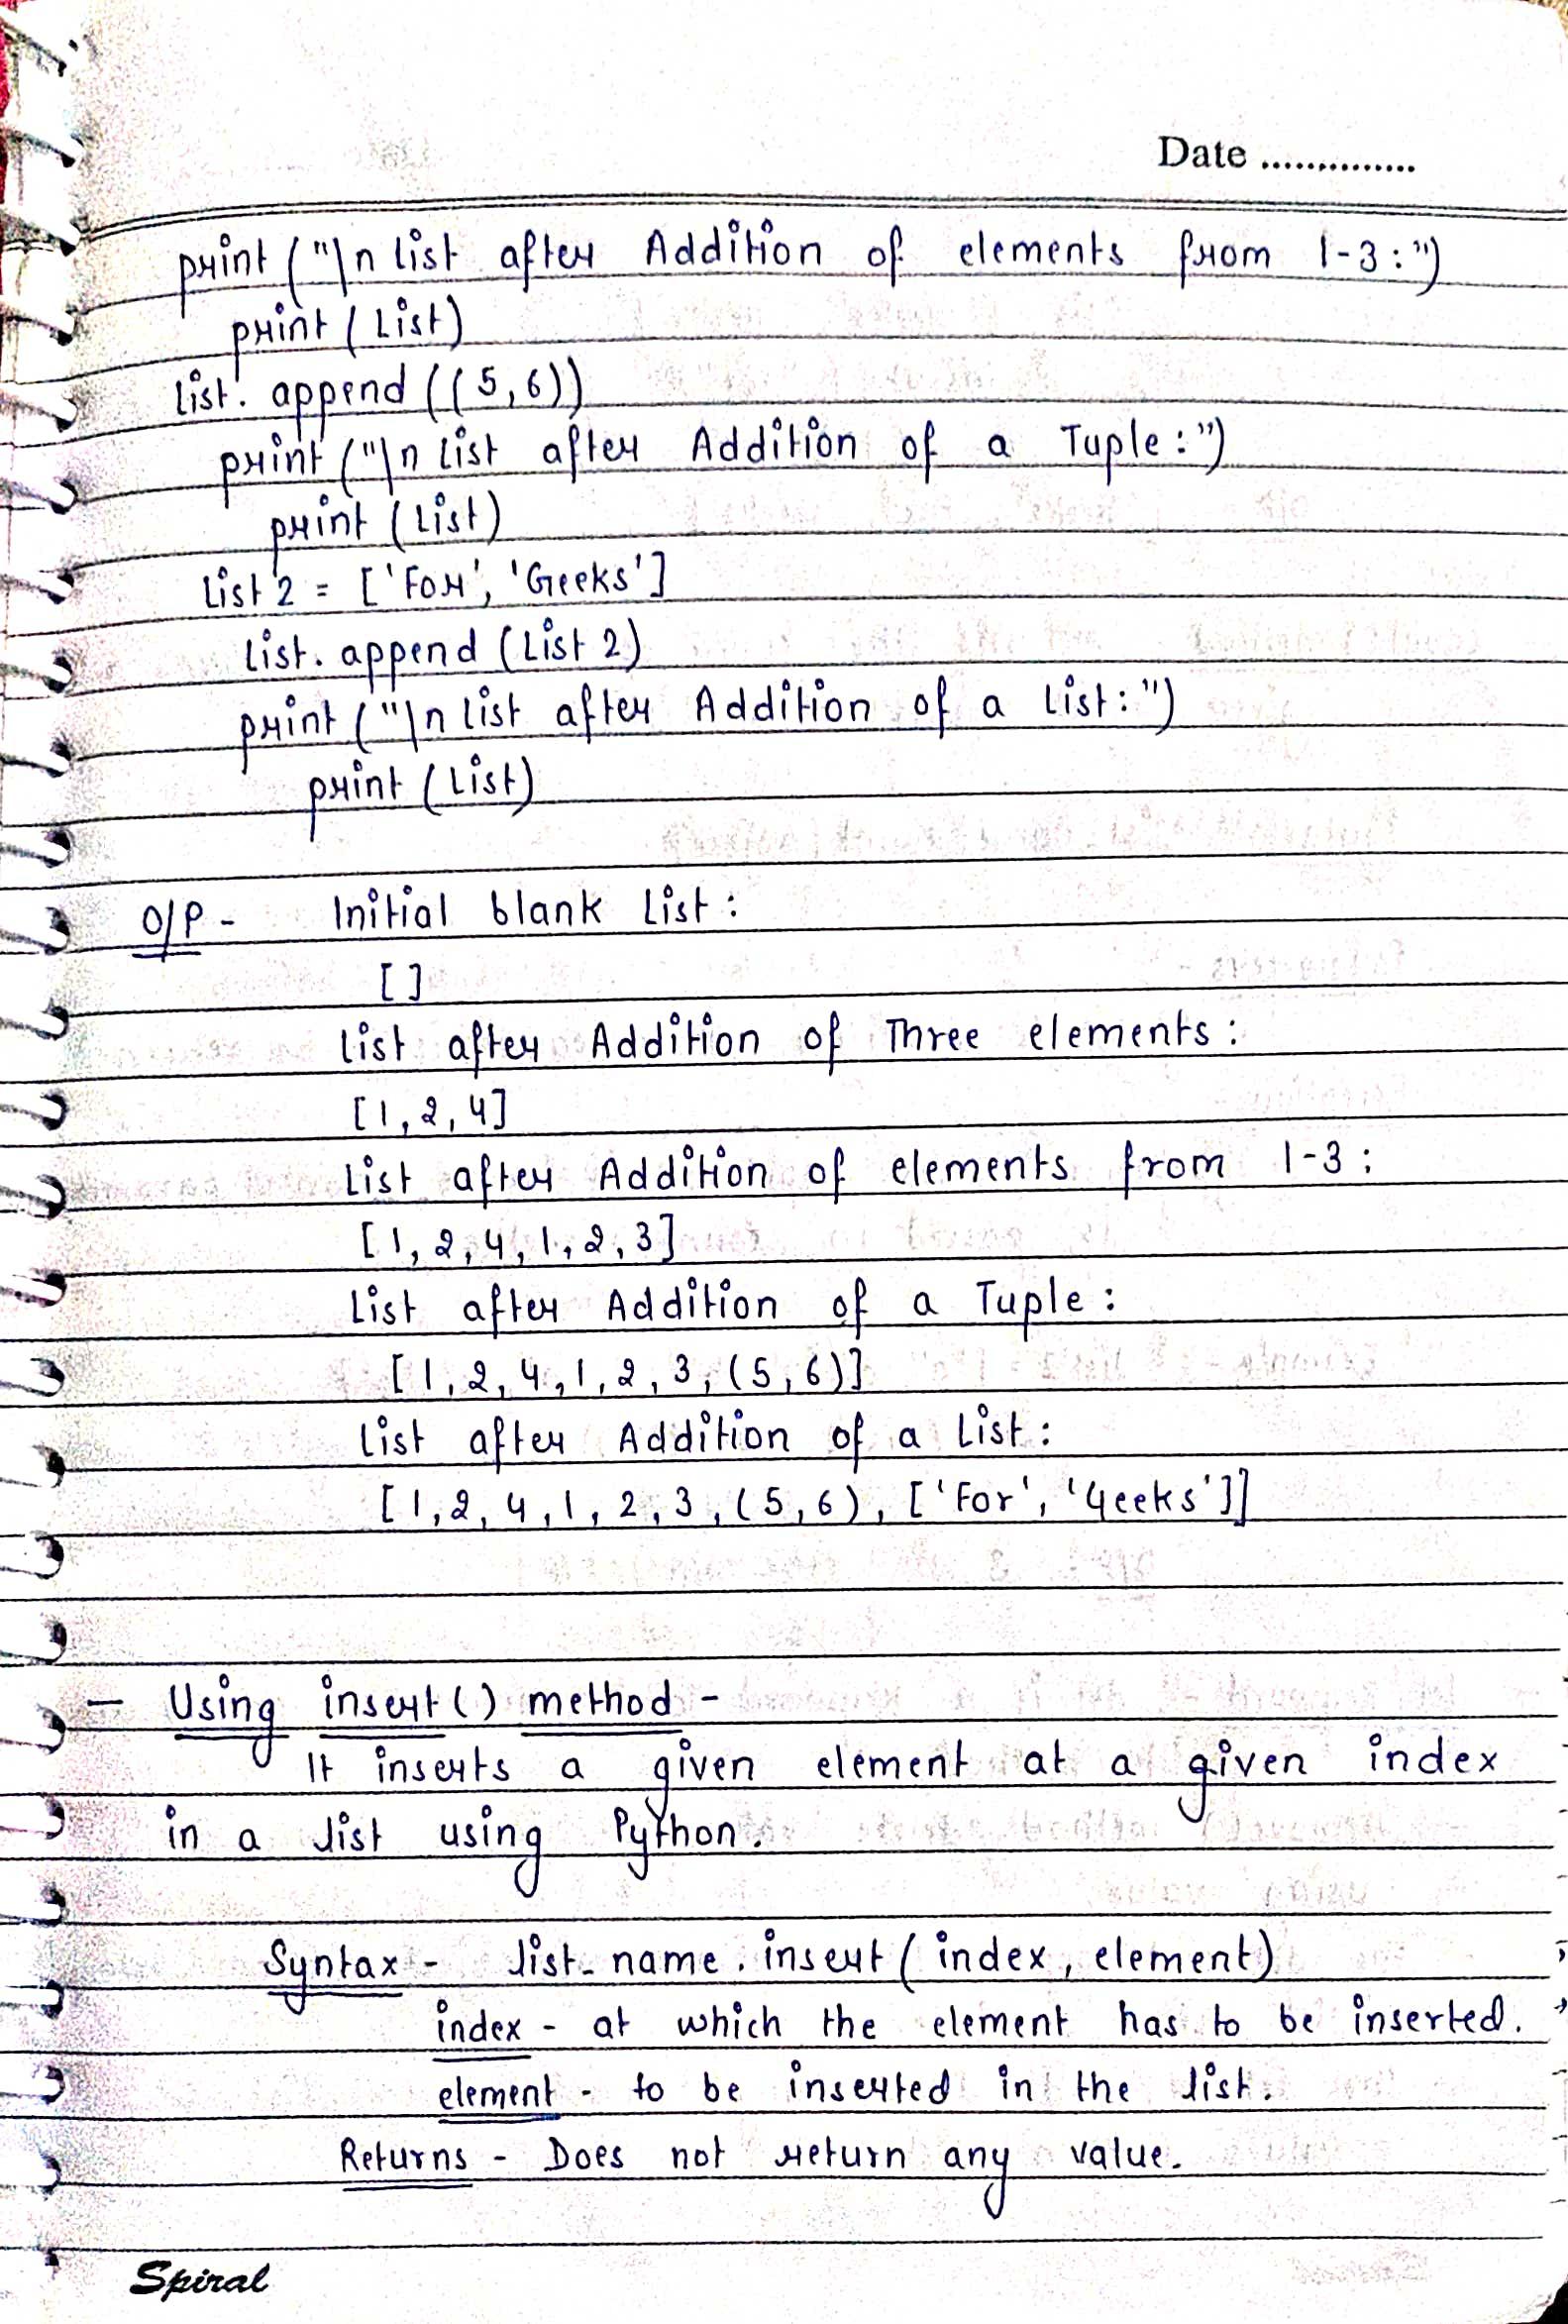 Date ...............
print ("\n list after Addition of elements from 1-3 :")
print ( List)
List. append ((5,6))
print ("\n List after Addition of a Tuple :")
print ( List)
List 2 = ['For', 'Geeks']
List. append (List 2)
print ("\n list after Addition of a List: ")
print ( List)
O/P - Initial blank List :
[ ]
List after Addition of Three elements :
[1, 2, 4]
List after Addition of elements from 1-3 :
[1, 2, 4, 1, 2, 3]
List after Addition of a Tuple :
[1, 2, 4, 1, 2, 3, (5, 6)]
List after Addition of a List :
[1, 2, 4, 1, 2, 3, (5, 6), ['For', 'Geeks']]
- Using insert () method -
It inserts a given element at a given index
in a list using Python.
Syntax - list_name . insert ( index, element)
index - at which the element has to be inserted.
element - to be inserted in the list.
Returns - Does not return any value.
Spiral